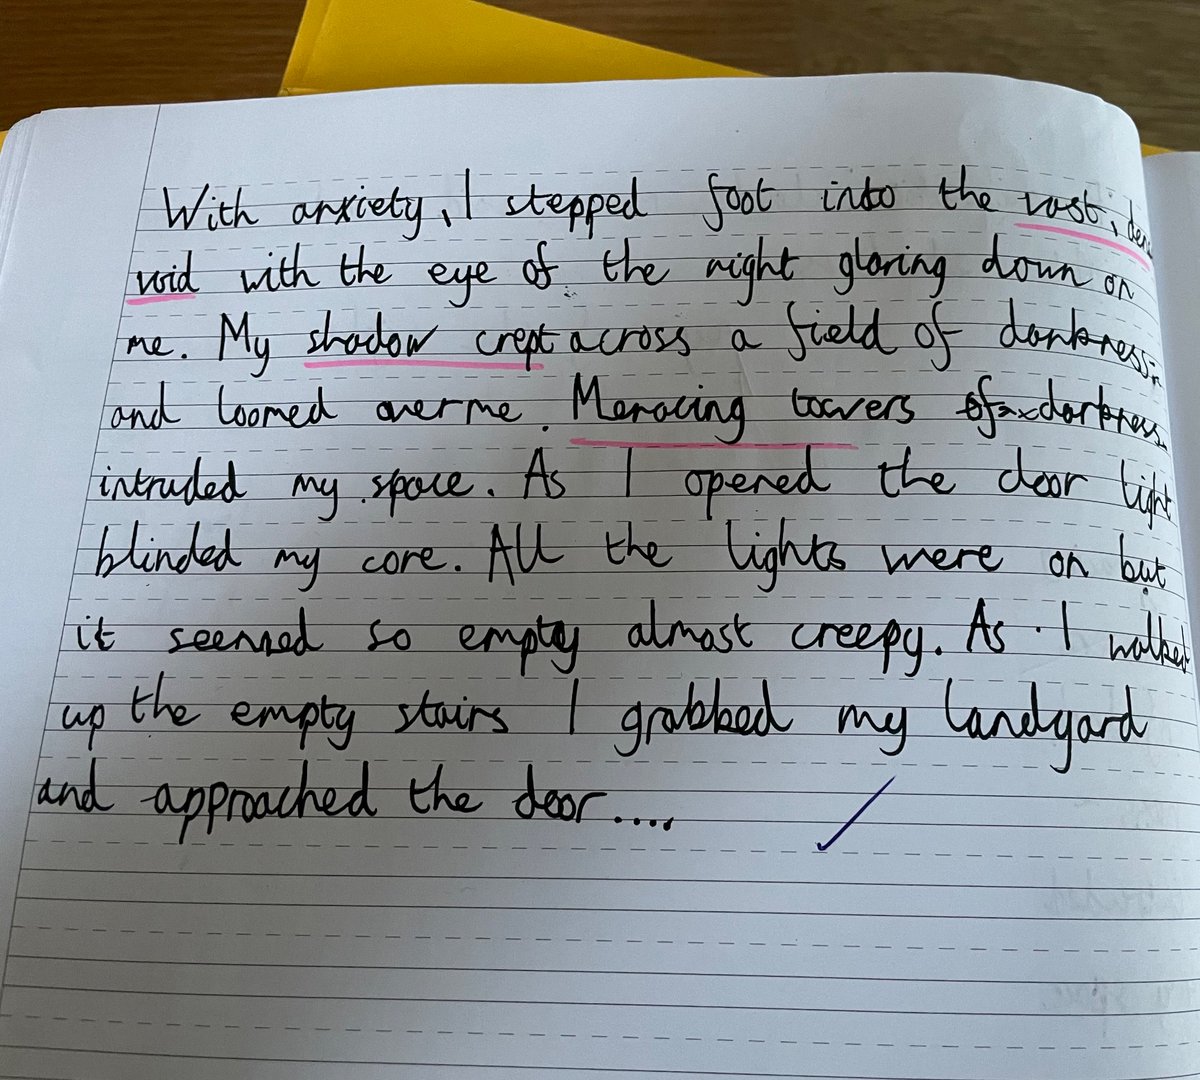 With anxiety, I stepped foot into the vast,
void with the eye of the night glaring down on
me. My shadow crept across a field of darkness
and loomed over me. Menacing towers of darkness
intruded my space. As I opened the door light
blinded my core. All the lights were on but
it seemed so empty almost creepy. As I walked
up the empty stairs I grabbed my landyard
and approached the door....